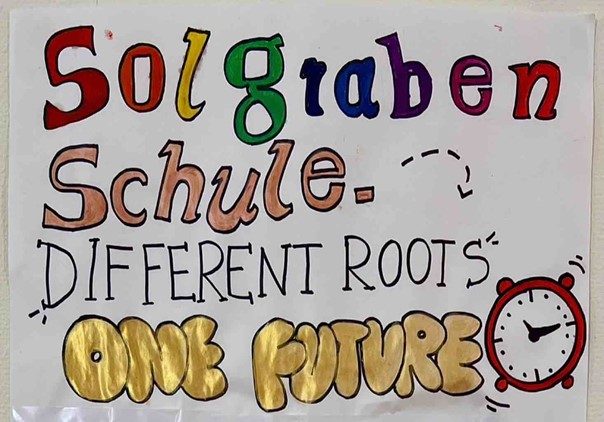 Solgraben
Schule-
DIFFERENT ROOTS
ONE FUTURE